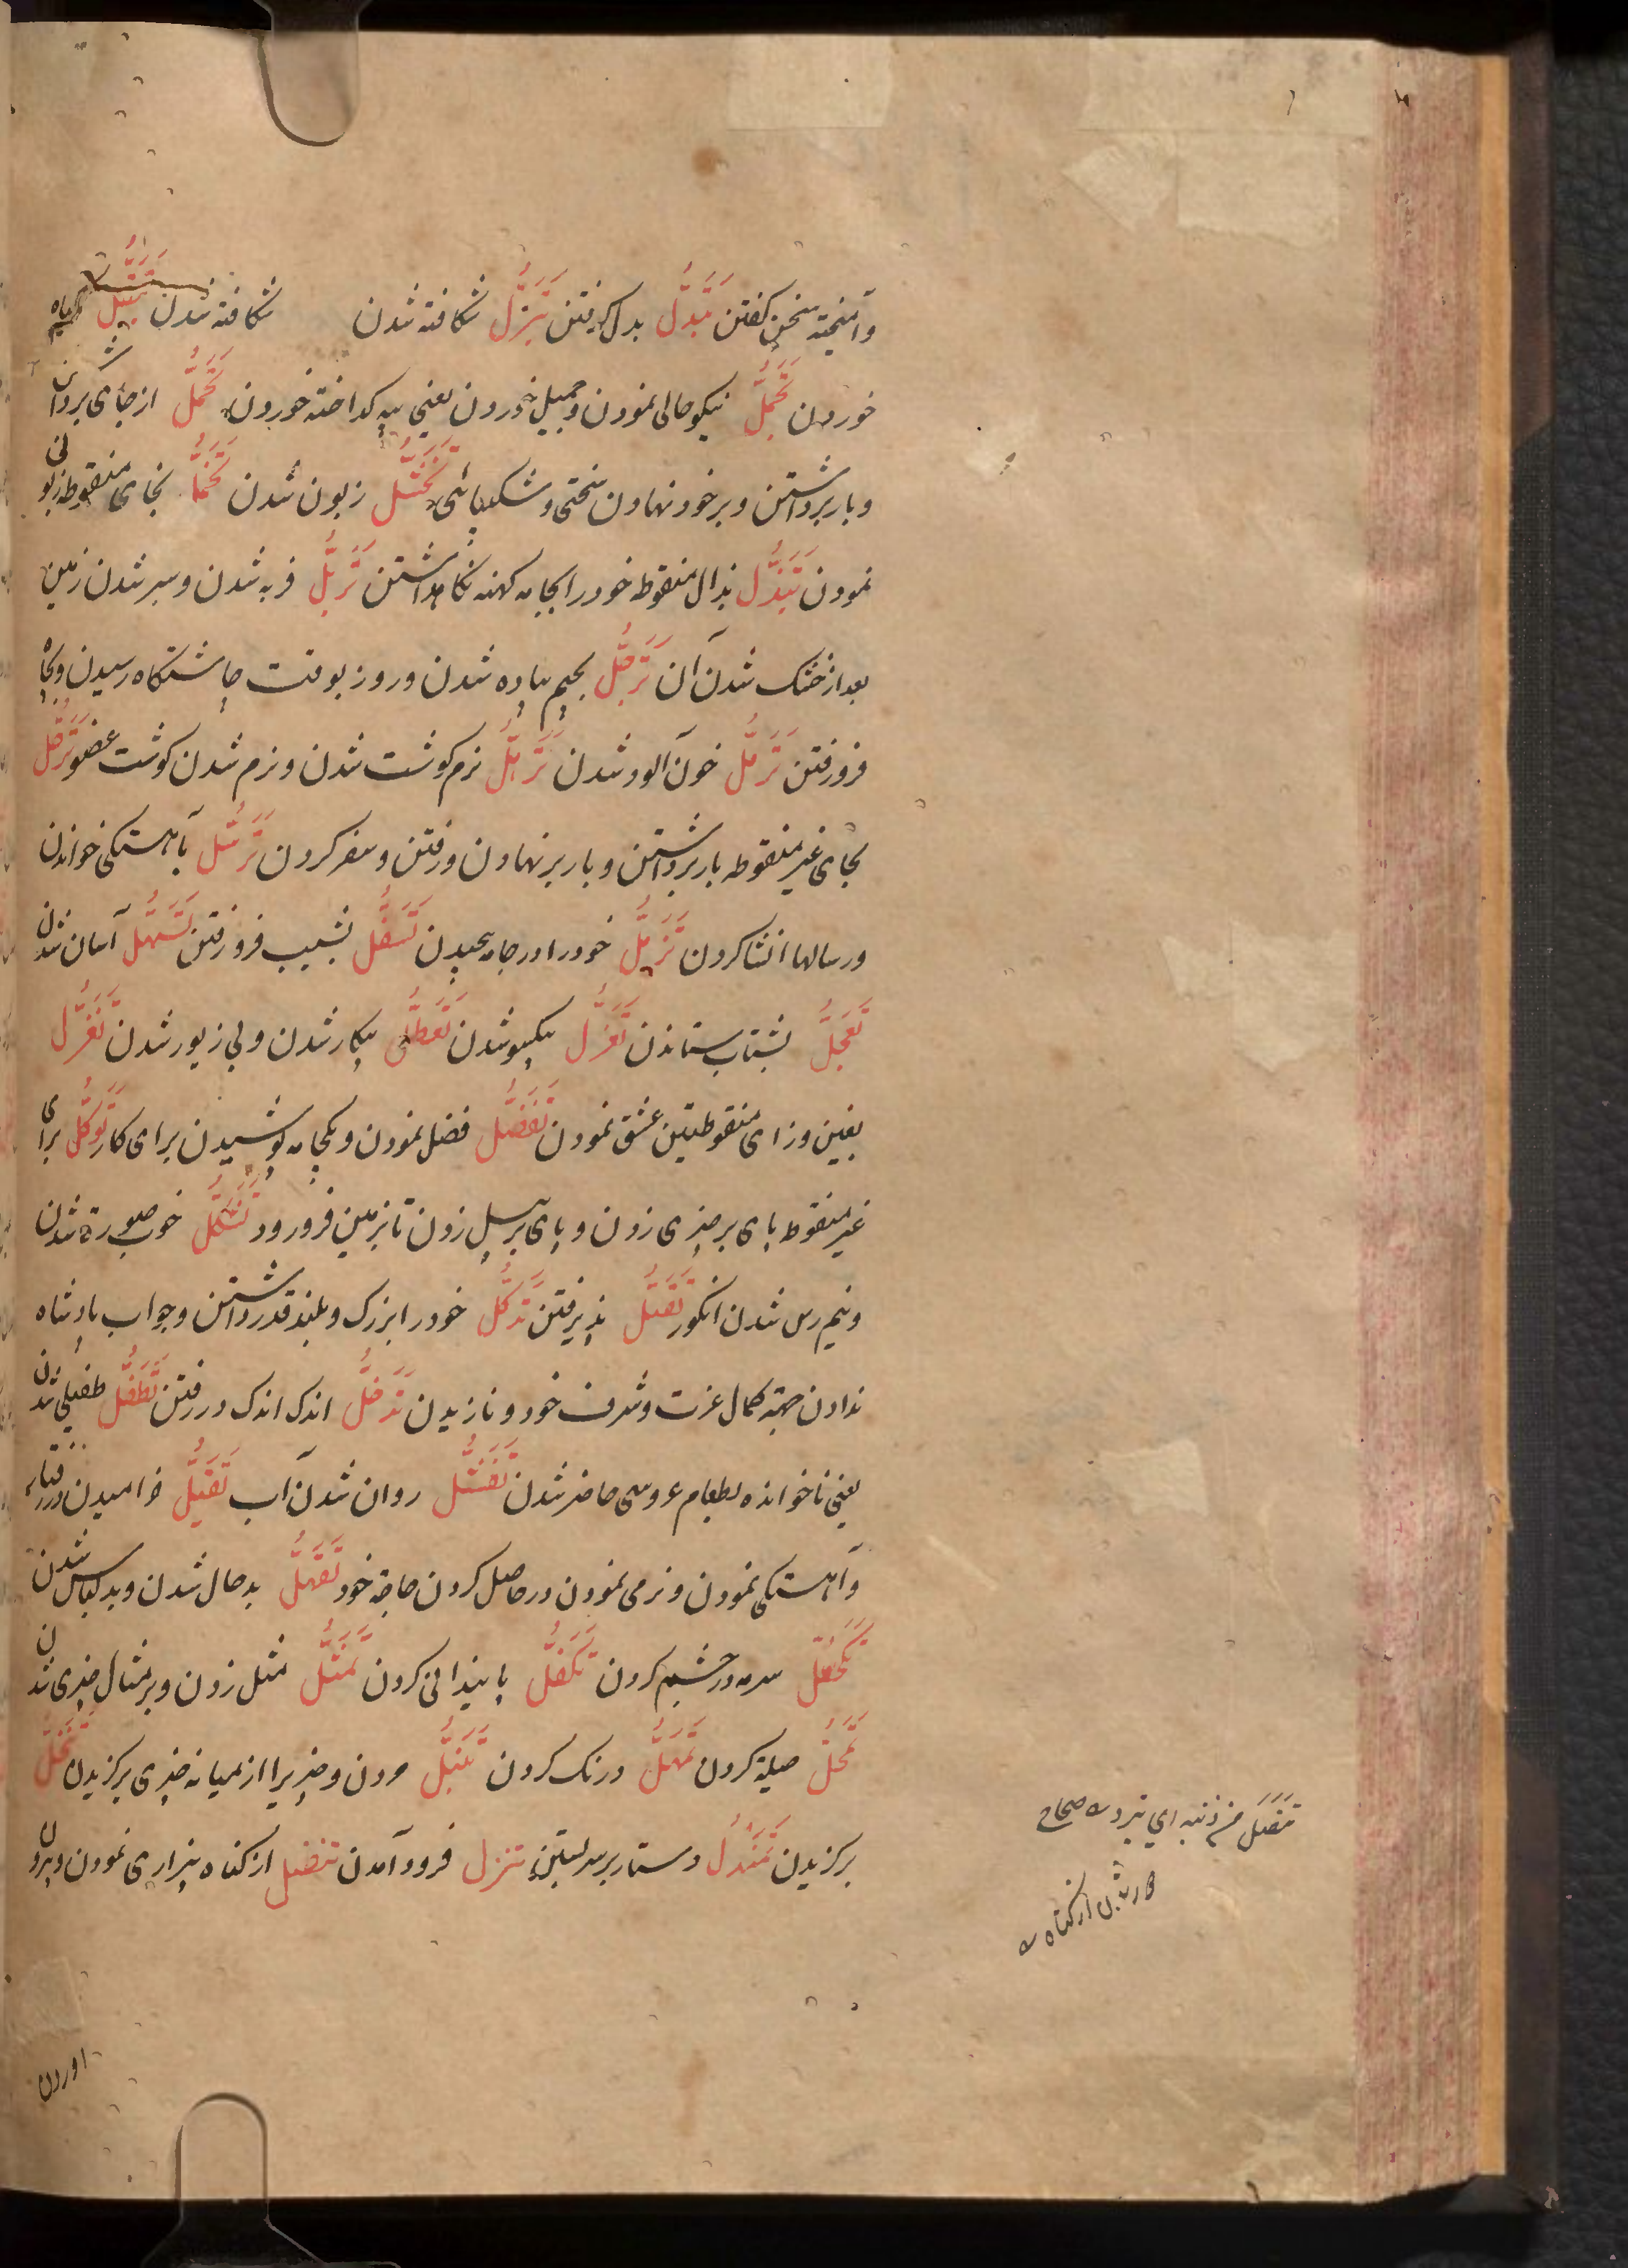 وآمیخته سخن کفتن تَبَدُّل بدل کرفتن تَبَزُّل شکافته شدن شکافته شدن تَبَتُّل کیاه
خوردن تَجَمُّل نیکو حالی نمودن و جمیل خوردن یعنی پیه کداخته خوردن تَحَمُّل از جای برداشتن
و بار برداشتن و بر خود نهادن سختی و شکیبائی تَخَشُّل زبون شدن بخای منقوطه زبونی
نمودن تَبَذُّل بذال منقوطه خود را بجامه کهنه نکاه داشتن تَرَبُّل فربه شدن و سبز شدن زمین
بعد از خشک شدن آن تَرَجُّل بجیم پیاده شدن و روز بوقت چاشتکاه رسیدن و بچاه
فرو رفتن تَرَمُّل خون آلود شدن تَرَهُّل نرم کوشت شدن و نرم شدن کوشت عضو تَرَحُّل
بحای غیر منقوطه بار برداشتن و بار بر نهادن و رفتن و سفر کردن تَرَسُّل بآهستکی خواندن
و رسالها انشا کردن تَزَمُّل خود را در جامه پیچیدن تَسَفُّل بشیب فرو رفتن تَسَهُّل آسان شدن
تَعَجُّل بشتاب ستاندن تَعَزُّل بیکسو شدن تَعَطُّل بیکار شدن و بی زیور شدن تَغَزُّل
بغین و زای منقوطتین عشق نمودن تَفَضُّل فضل نمودن و یکجامه پوشیدن برای کار تَرَكُّل برای
غیر منقوط پای بر چیزی زدن و پای بر بیل زدن تا بزمین فرو رود تَشَكُّل خوب صورة شدن
و نیم رس شدن انکور تَقَبُّل پذیرفتن تَدَكُّل خود را بزرک و بلند قدر داشتن و جواب پادشاه
ندادن جهة کمال عزت و شرف خود و نازیدن تَدَخُّل اندک اندک در رفتن تَطَفُّل طفیلی شدن
یعنی ناخوانده بطعام عروسی حاضر شدن روان شدن آب تَقَيُّل خرامیدن در رفتار
و آهستکی نمودن و نرمی نمودن در حاصل کردن حاجة خود تَقَهُّل بد حال شدن و بد لباس شدن
تَكَحُّل سرمه در چشم کردن تَكَفُّل پایندانی کردن تَمَثُّل مثل زدن و بر مثال چیزی شدن
تَمَحُّل حیلة کردن تَمَهُّل درنک کردن تَنَبُّل مردن و چیزیرا از میانه چیزی برکزیدن تَنَخُّل
برکزیدن تَمَنْدُل دستار بر سر بستن تنزل فرود آمدن تنصل از کناه بیزاری نمودن و بیرون
تنصل من ذنبه ای تبرء صحاح
از کناه
اوردن